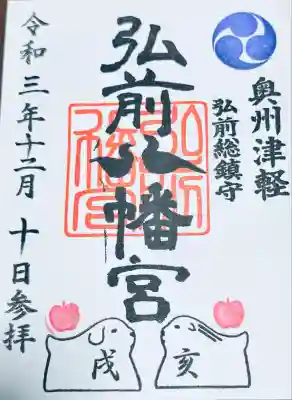 奥州津軽
弘前総鎮守
弘前八幡宮
令和三年十二月十日参拝
亥
戌